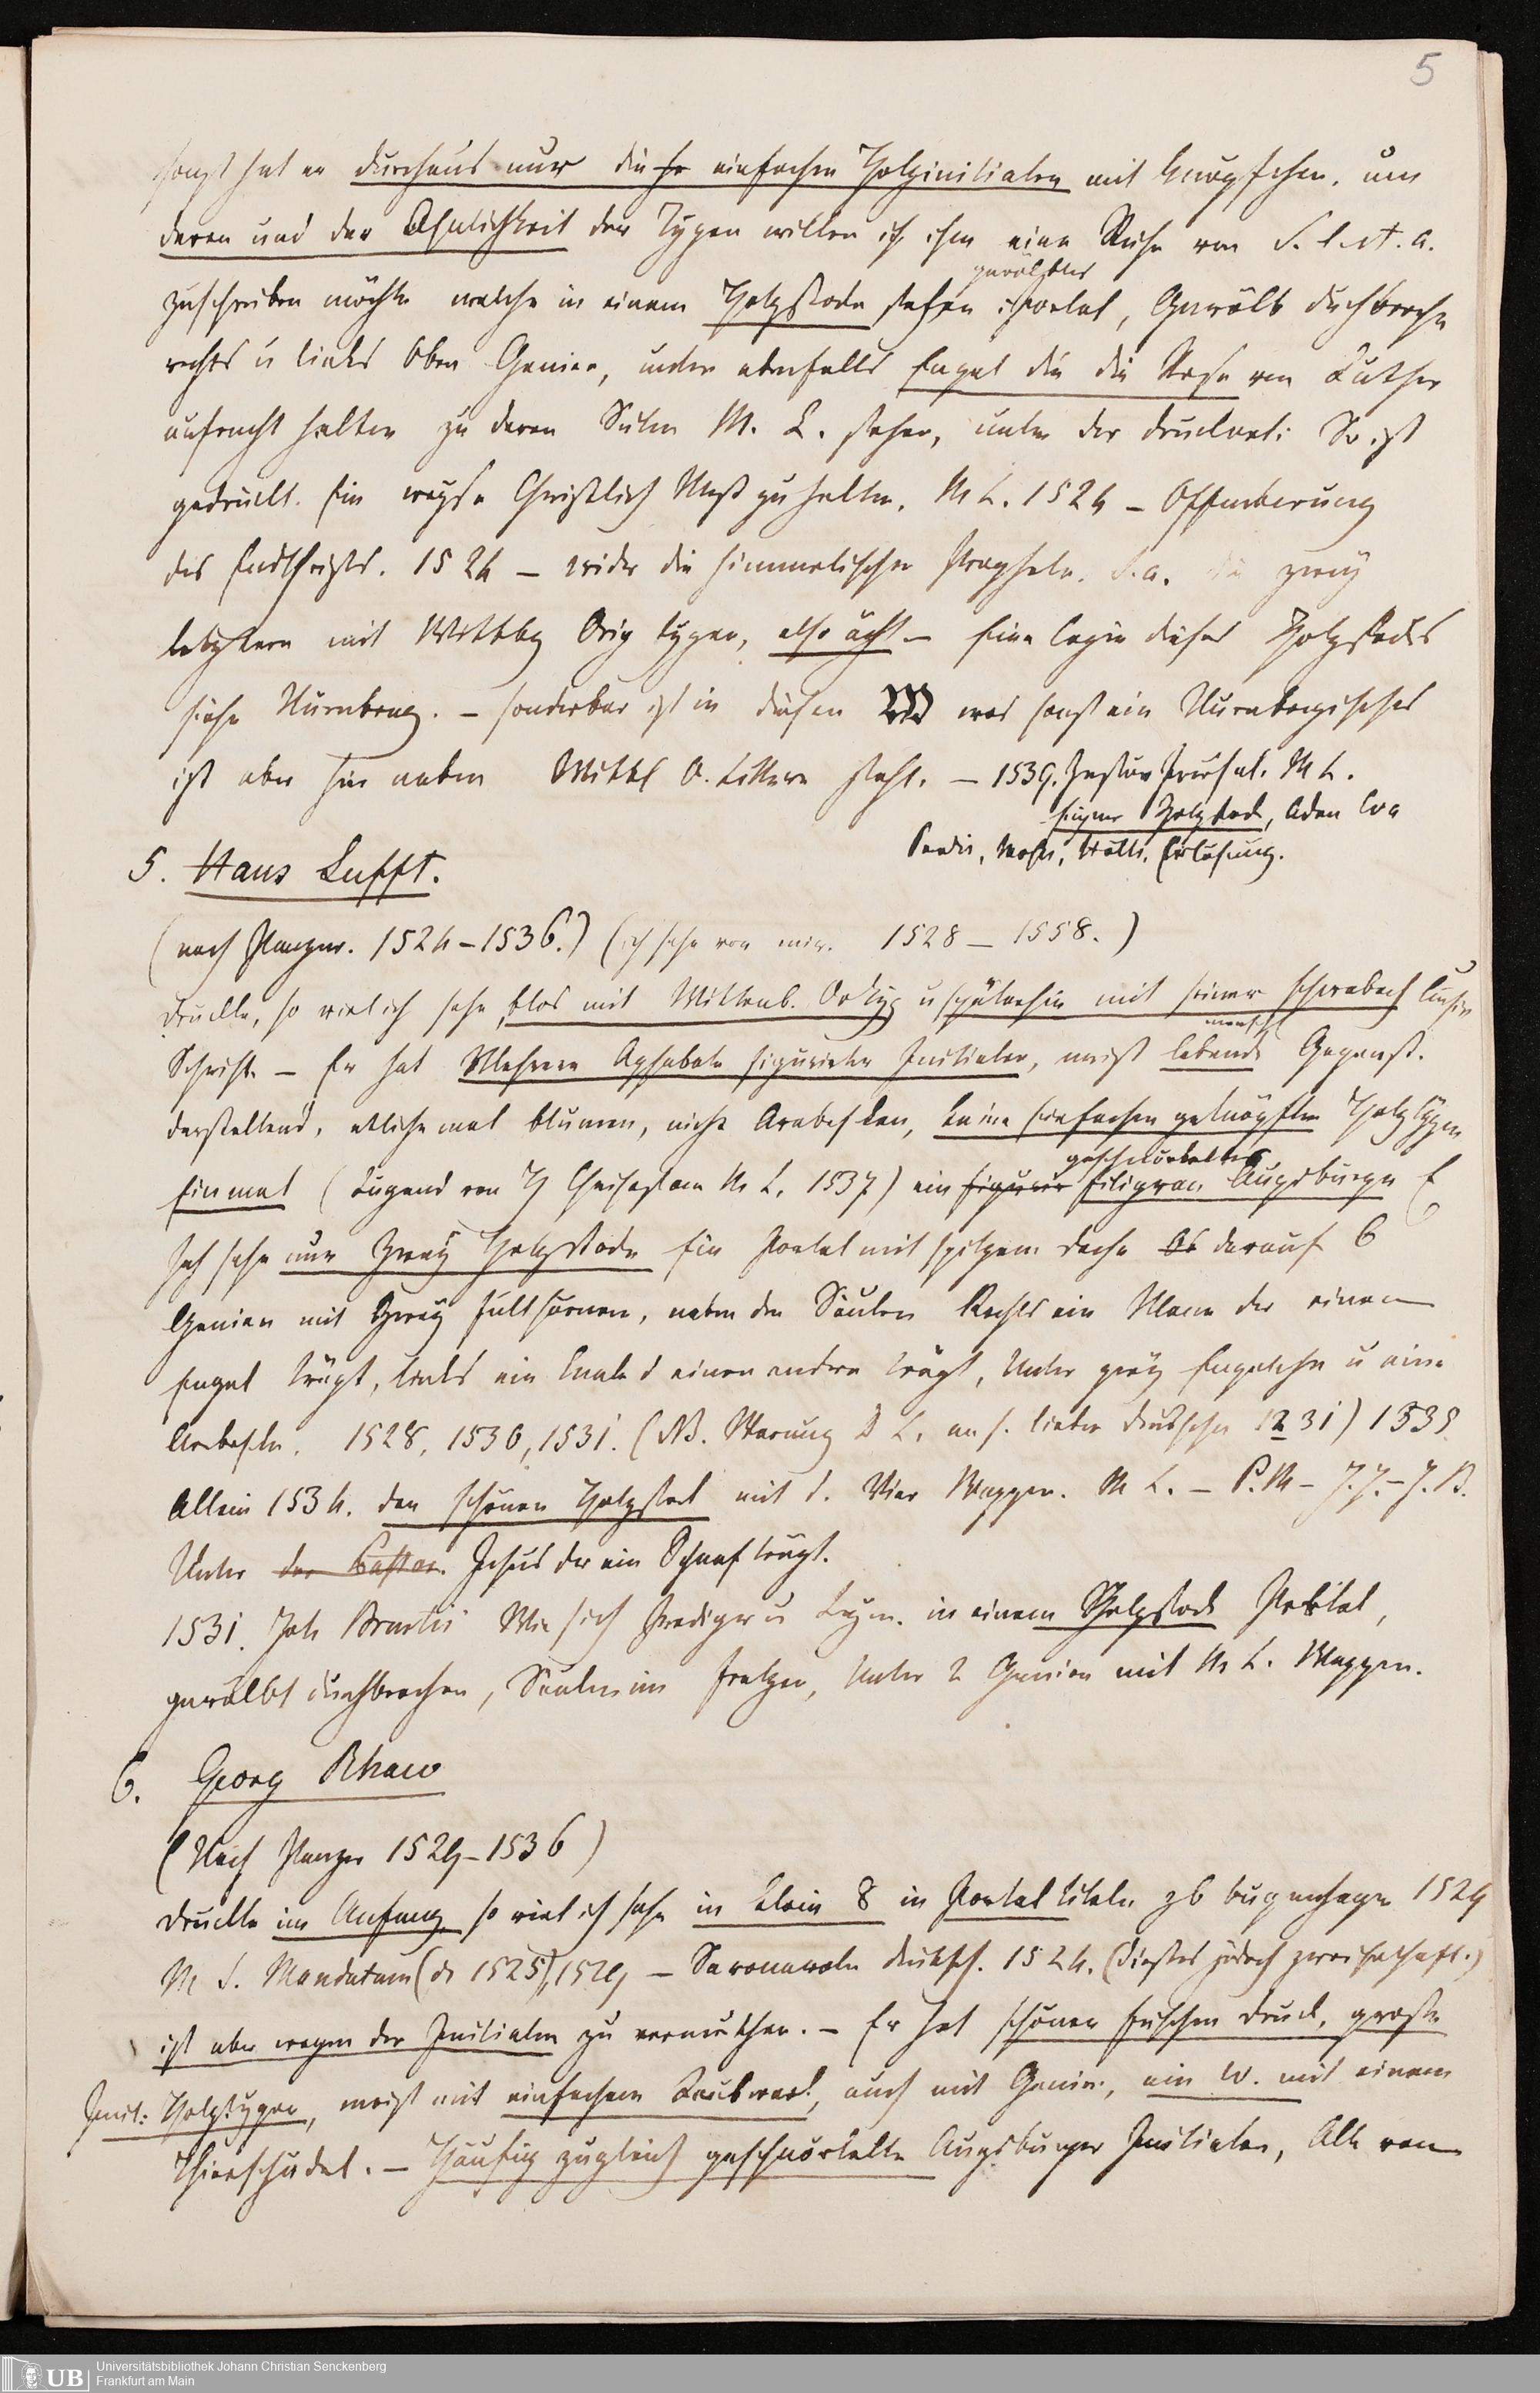 5
sonst hat er durchaus nur die einfachen Holzinitialen mit Knöpfchen, um
deren und der Ähnlichkeit der Typen willen ich ihm eine Reihe von S. l. et. a.
gewölbtes
zuschreiben möchte welche in einem Holzstocke stehen: Portal, Gewölb durchbrochen
rechts u links Oben Genien, unten ebenfalls Engel die die Rose von Luther
aufrecht halten zu deren Seiten M. L. stehen, unten der druckort: So ist
gedruckt. Ein weyse Christlich Mess zu halten. M L. 1524 – Offenberung
des Endtchrists. 1524 – wider die himmelischen Propheten. S. a. die zwey
letztern mit Wittbg Orig typen, also ächt – Eine Copie dieses Holzstocks
siehe Nürnberg. – sonderbar ist in diesen W was sonst ein Nürnbergisches
ist aber hier neben Wittb O. Lettern steht. – 1539. M L.
Eigner Holzstock, Adam Eva
Paradis, Moses, Erlösung.
5. Hans Lufft.
(nach Panzer. 1524–1536.) (ich sehe von mir. 1528 – 1558.)
druckte, so viel ich sehe, blos mit Wittenb. Ortyp u späterhin mit seiner schwabach
menschl
Schrift. – Er hat Mehrere Aphabete figurirter Initialen, meist lebende Gegenst.
darstellend, etlichemal blumen, nicht Arabesken, keine einfachen geknöpften Holztypen
geschnörkeltes
Einmal (Tugend von M L. 1537) ein figurir filigran Augsburger E
Ich sehe nur Zwey Holzstöcke Ein Portal mit spitzem dache darauf 6
Genien mit Zwey Füllhörnern, neben den Säulen Rechts ein Mann der einen
Engel trägt, links ein Knabe d einen andern trägt, Unten zwey Engelchen u eine
Arabeske. 1528, 1530, 1531. (NB. Warnung D L. an s. lieben deutschen 1231) 1535
Allein 1534. den schönen Holzstock mit d. Vier Wappen. M L. – P. M – J. J. – J. B.
Unten Jesus der ein Schaaf trägt.
1531. Joh Brentii Wie sich Prediger u Leyen. in einem Holzstock Portal,
gewölbt durchbrochen, Säulen im Fratzen, Unten 2 Genien mit M L. Wappen.
6. Georg Rhaw
(Nach Panzer 1529–1536)
druckte im Anfang so viel ich sehe in klein 8 in Portal titeln zb bugenhagen 1529
M S. Mandatum (de 1525), 1529 – Savonarola deutsch. 1524. (dieses jedoch zweifelhaft.)
ist aber wegen der Initialen zu vermuthen. – Er hat schönen frischen druck, grosse
Init: Holztypen, meist mit einfachem Laubwerk, auch mit Genien, ein W. mit einem
Thierschädel. – Häufig zugleich geschnörkelte Augsburger Initialen, Alle von
UB
Universitätsbibliothek Johann Christian Senckenberg
Frankfurt am Main